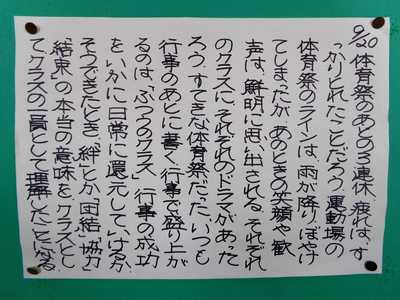 9/20 体育祭のあとの3連休、疲れは、す
っかりとれたことだろう。運動場の
体育祭のラインは、雨が降りぼやけ
てしまったが、あのときの笑顔や歓
声は、鮮明に思い出される。それぞれ
のクラスに、それぞれのドラマがあった
ろう。すてきな体育祭だった。いつも
行事のあとに書く。行事で盛り上が
るのは、「ふつうのクラス」。行事の成功
をいかに日常に還元していけるか。
そうできたとき、「絆」とか「団結」「協力」
「結束」の本当の意味を、クラスとし
て、クラスの一員として理解したことになる。